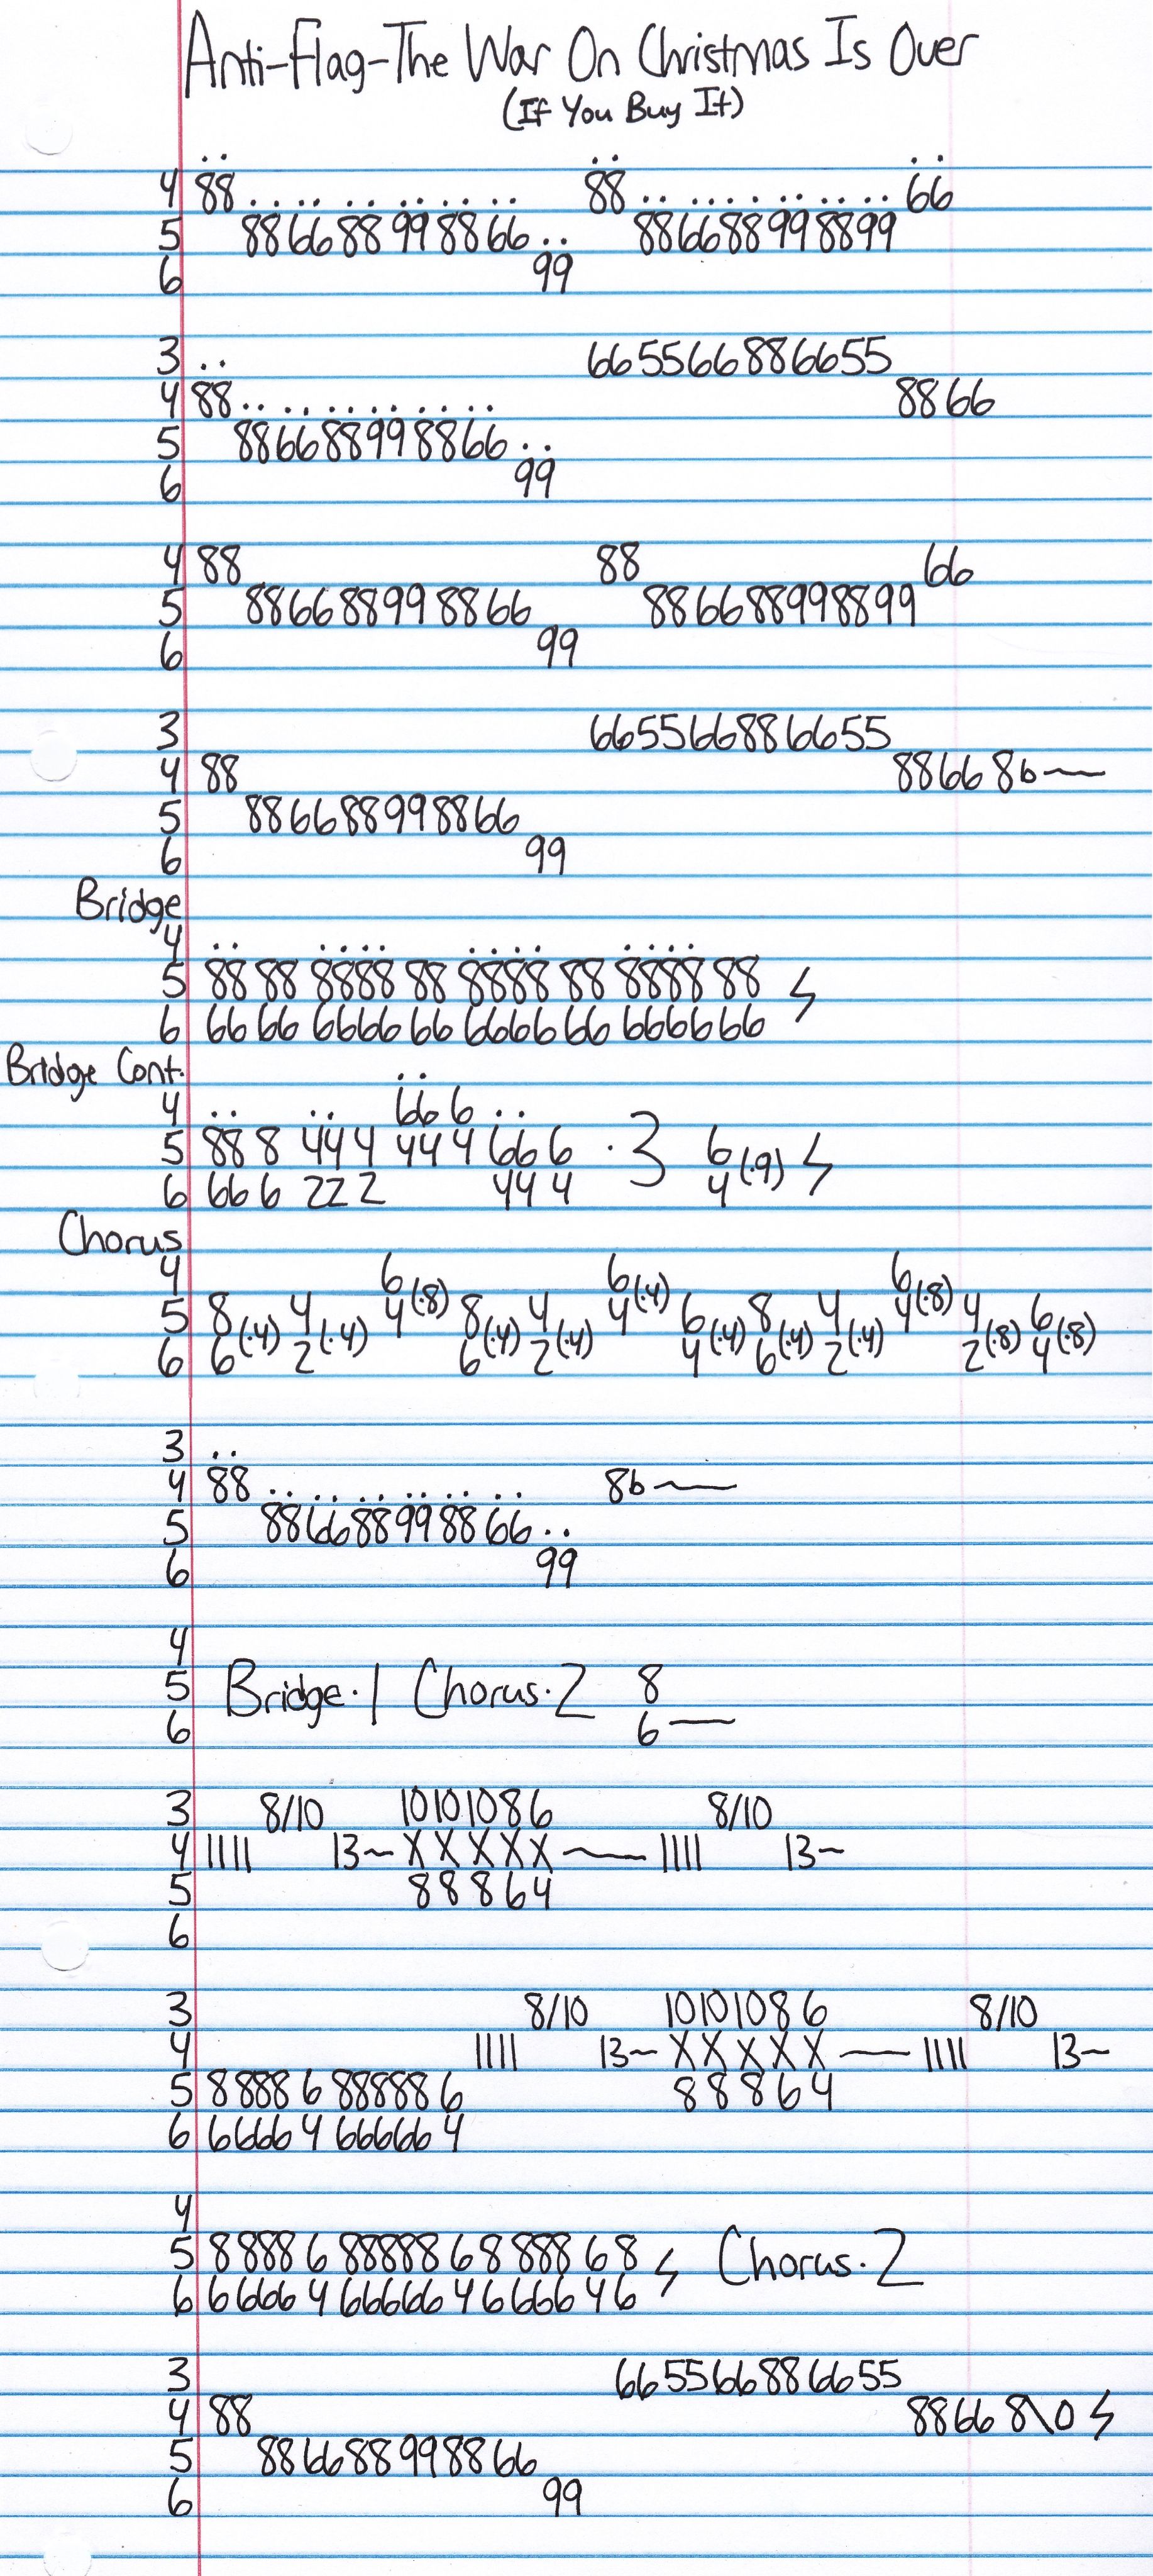 Anti-Flag-The War On Christmas Is Over
(If You Buy It)
4 88 88 66
5 886688998866 886688998899
6 99
3 665566886655
4 88 8866
5 886688998866
6 99
4 88 88 66
5 886688998866 886688998899
6 99
3 665566886655
4 88 8866 8b~
5 886688998866
6 99
Bridge
4
5 88 88 8888 88 8888 88 8888 88
6 66 66 6666 66 6666 66 6666 66
Bridge Cont.
4 66 6
5 88 8 44 4 44 4 66 6 ·3 6
6 66 6 22 2 44 4 4(·9)
Chorus
4 6 6 6
5 8 4 4(·8) 8 4 4(·4) 6 8 4 4(·8) 4 6
6 6(·4) 2(·4) 6(·4) 2(·4) 4(·4) 6(·4) 2(·4) 2(·8) 4(·8)
3
4 88 8b~
5 886688998866
6 99
4
5 Bridge·1 Chorus·2 8
6 6—
3 8/10 10101086 8/10
4 1111 13~ XXXXX — 1111 13~
5 88864
6
3 8/10 10101086 8/10
4 1111 13~ XXXXX — 1111 13~
5 8 888 6 88888 6 88864
6 6666 4 66666 4
4
5 8 888 6 88888 6 8 888 6 8 Chorus·2
6 6 666 4 66666 4 6 666 4 6
3 665566886655
4 88 8866 8\0
5 886688998866
6 99